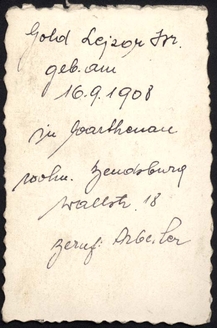 Gold Lejzor Isr.
geb. am
16.9.1908
in Warthenau
wohn. Bendsburg
Wallstr. 18
Beruf: Arbeiter